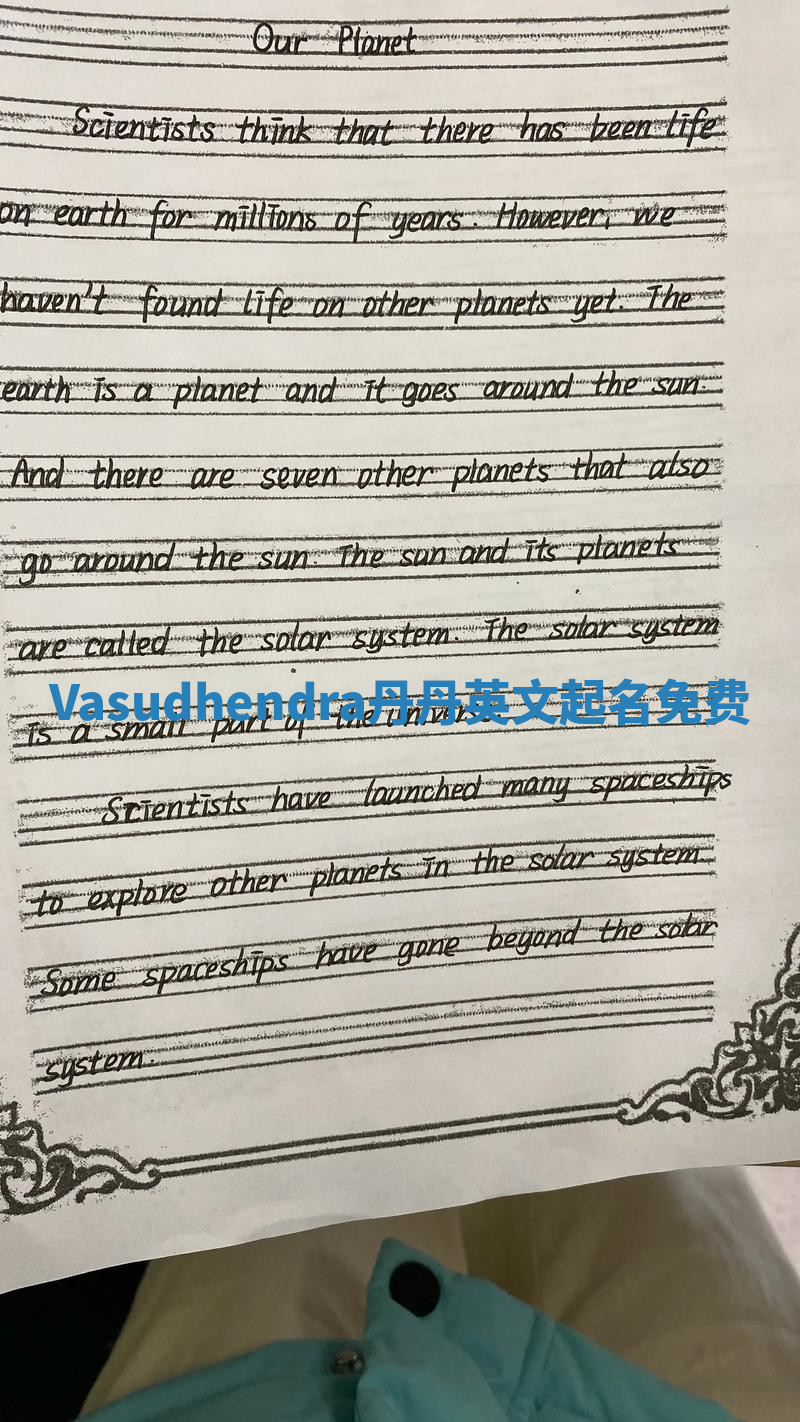 Our Planet
Scientists think that there has been life
on earth for millions of years. However, we
haven't found life on other planets yet. The
earth is a planet and it goes around the sun.
And there are seven other planets that also
go around the sun. The sun and its planets
are called the solar system. The solar system
Vasudhendra丹丹英文起名免费
is a small part of the universe
Scientists have launched many spaceships
to explore other planets in the solar system.
Some spaceships have gone beyond the solar
system.